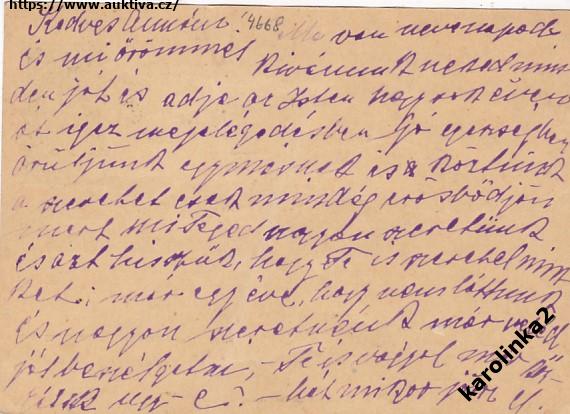 https://www.auktiva.cz/
Kedves Annám! 4668 Ma van nevenapod
és mi örömmel
kivánunk neked min
den jót és adja az Isten hogy sok éven
át igaz megelégedésben jó egeszségben
örüljünk egymásnak és köztünk
a szeretet csak mindég erősbödjön
mert mi Teged nagyon szeretünk
és azt hisszük, hogy Te is szeretel min
ket; már egy éve, hogy nem láttunk
és nagyon szeretnénk már veled
jól beszélgetni, – Te is
ugy e? – hat mikor
karolinka2